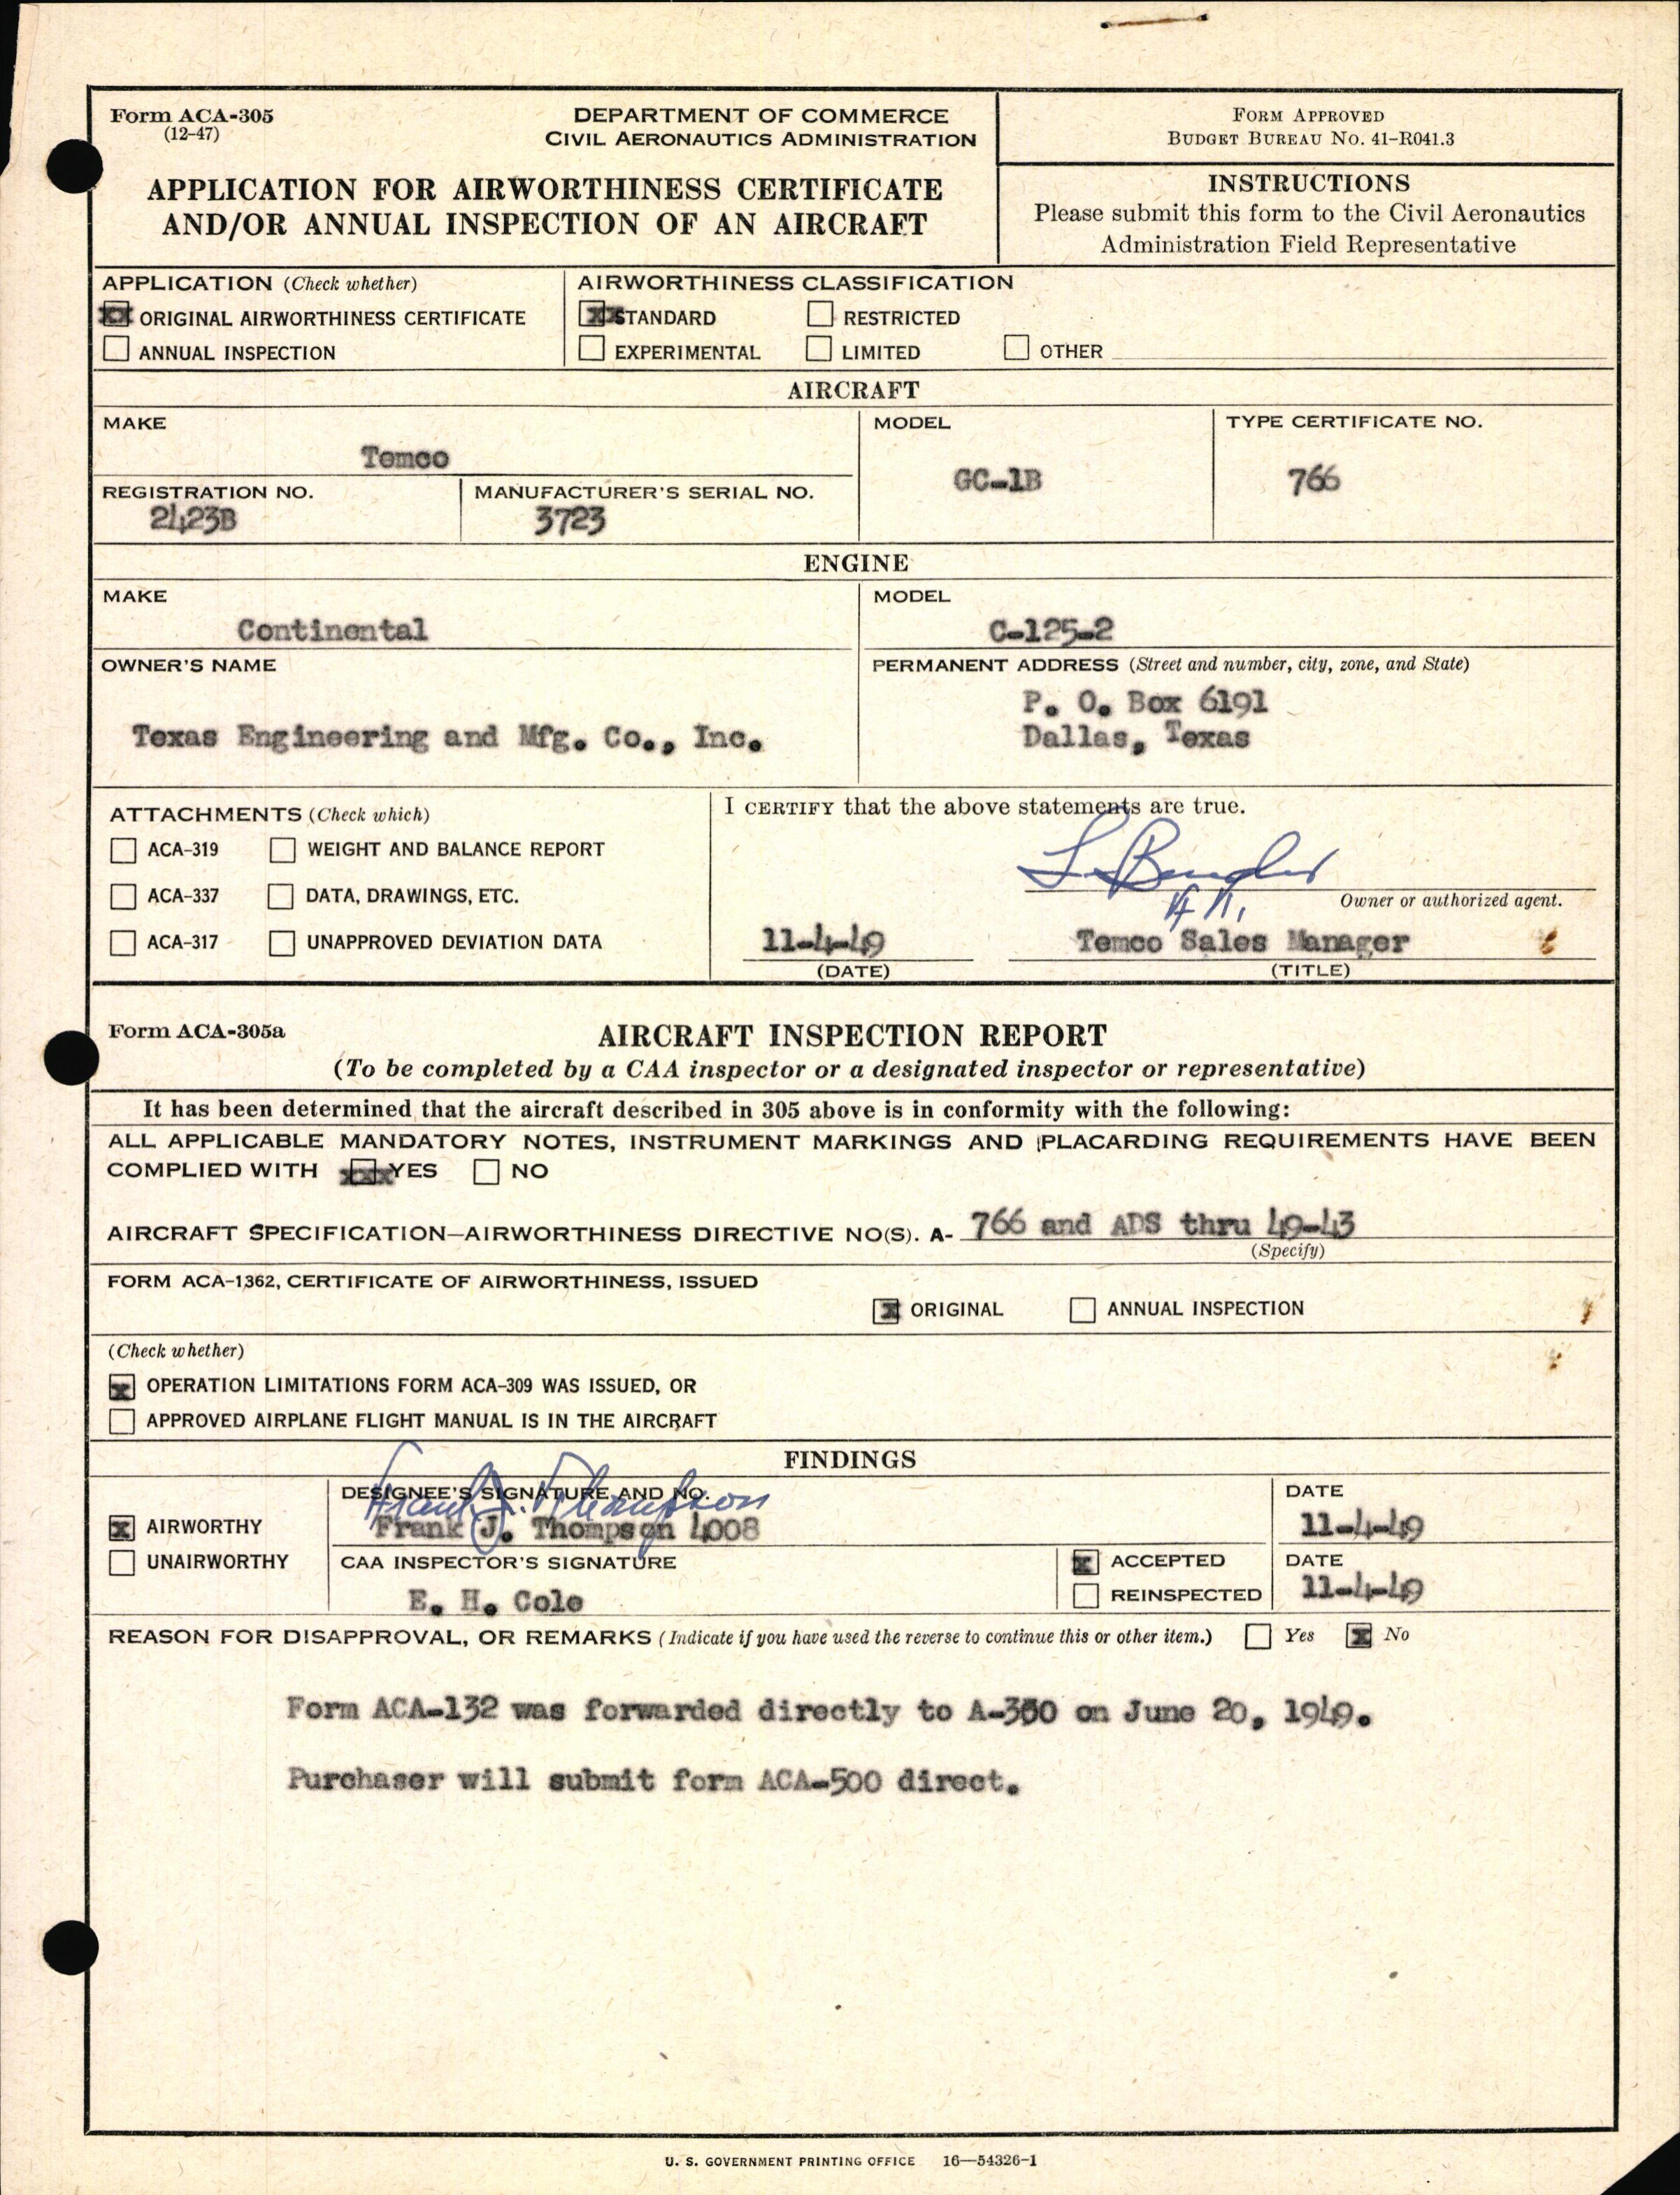 Form ACA-305
(12-47)
DEPARTMENT OF COMMERCE
CIVIL AERONAUTICS ADMINISTRATION
APPLICATION FOR AIRWORTHINESS CERTIFICATE
AND/OR ANNUAL INSPECTION OF AN AIRCRAFT
FORM APPROVED
BUDGET BUREAU NO. 41-R041.3
INSTRUCTIONS
Please submit this form to the Civil Aeronautics
Administration Field Representative
APPLICATION (Check whether)
ORIGINAL AIRWORTHINESS CERTIFICATE
ANNUAL INSPECTION
AIRWORTHINESS CLASSIFICATION
STANDARD RESTRICTED
EXPERIMENTAL LIMITED OTHER
AIRCRAFT
MAKE
Temco
MODEL
GC-1B
TYPE CERTIFICATE NO.
766
REGISTRATION NO.
2423B
MANUFACTURER'S SERIAL NO.
3723
ENGINE
MAKE
Continental
MODEL
C-125-2
OWNER'S NAME
Texas Engineering and Mfg. Co., Inc.
PERMANENT ADDRESS (Street and number, city, zone, and State)
P. O. Box 6191
Dallas, Texas
ATTACHMENTS (Check which)
ACA-319 WEIGHT AND BALANCE REPORT
ACA-337 DATA, DRAWINGS, ETC.
ACA-317 UNAPPROVED DEVIATION DATA
I CERTIFY that the above statements are true.
Owner or authorized agent.
11-4-49 Temco Sales Manager
(DATE) (TITLE)
Form ACA-305a
AIRCRAFT INSPECTION REPORT
(To be completed by a CAA inspector or a designated inspector or representative)
It has been determined that the aircraft described in 305 above is in conformity with the following:
ALL APPLICABLE MANDATORY NOTES, INSTRUMENT MARKINGS AND PLACARDING REQUIREMENTS HAVE BEEN
COMPLIED WITH xxx YES NO
AIRCRAFT SPECIFICATION—AIRWORTHINESS DIRECTIVE NO(S). A- 766 and ADS thru 49-43
(Specify)
FORM ACA-1362, CERTIFICATE OF AIRWORTHINESS, ISSUED
x ORIGINAL ANNUAL INSPECTION
(Check whether)
x OPERATION LIMITATIONS FORM ACA-309 WAS ISSUED, OR
APPROVED AIRPLANE FLIGHT MANUAL IS IN THE AIRCRAFT
FINDINGS
x AIRWORTHY
UNAIRWORTHY
DESIGNEE'S SIGNATURE AND NO.
Frank J. Thompson
Frank J. Thompson 4008
DATE
11-4-49
CAA INSPECTOR'S SIGNATURE
E. H. Cole
x ACCEPTED
REINSPECTED
DATE
11-4-49
REASON FOR DISAPPROVAL, OR REMARKS (Indicate if you have used the reverse to continue this or other item.) Yes x No
Form ACA-132 was forwarded directly to A-300 on June 20, 1949.
Purchaser will submit form ACA-500 direct.
U. S. GOVERNMENT PRINTING OFFICE 16—54326-1